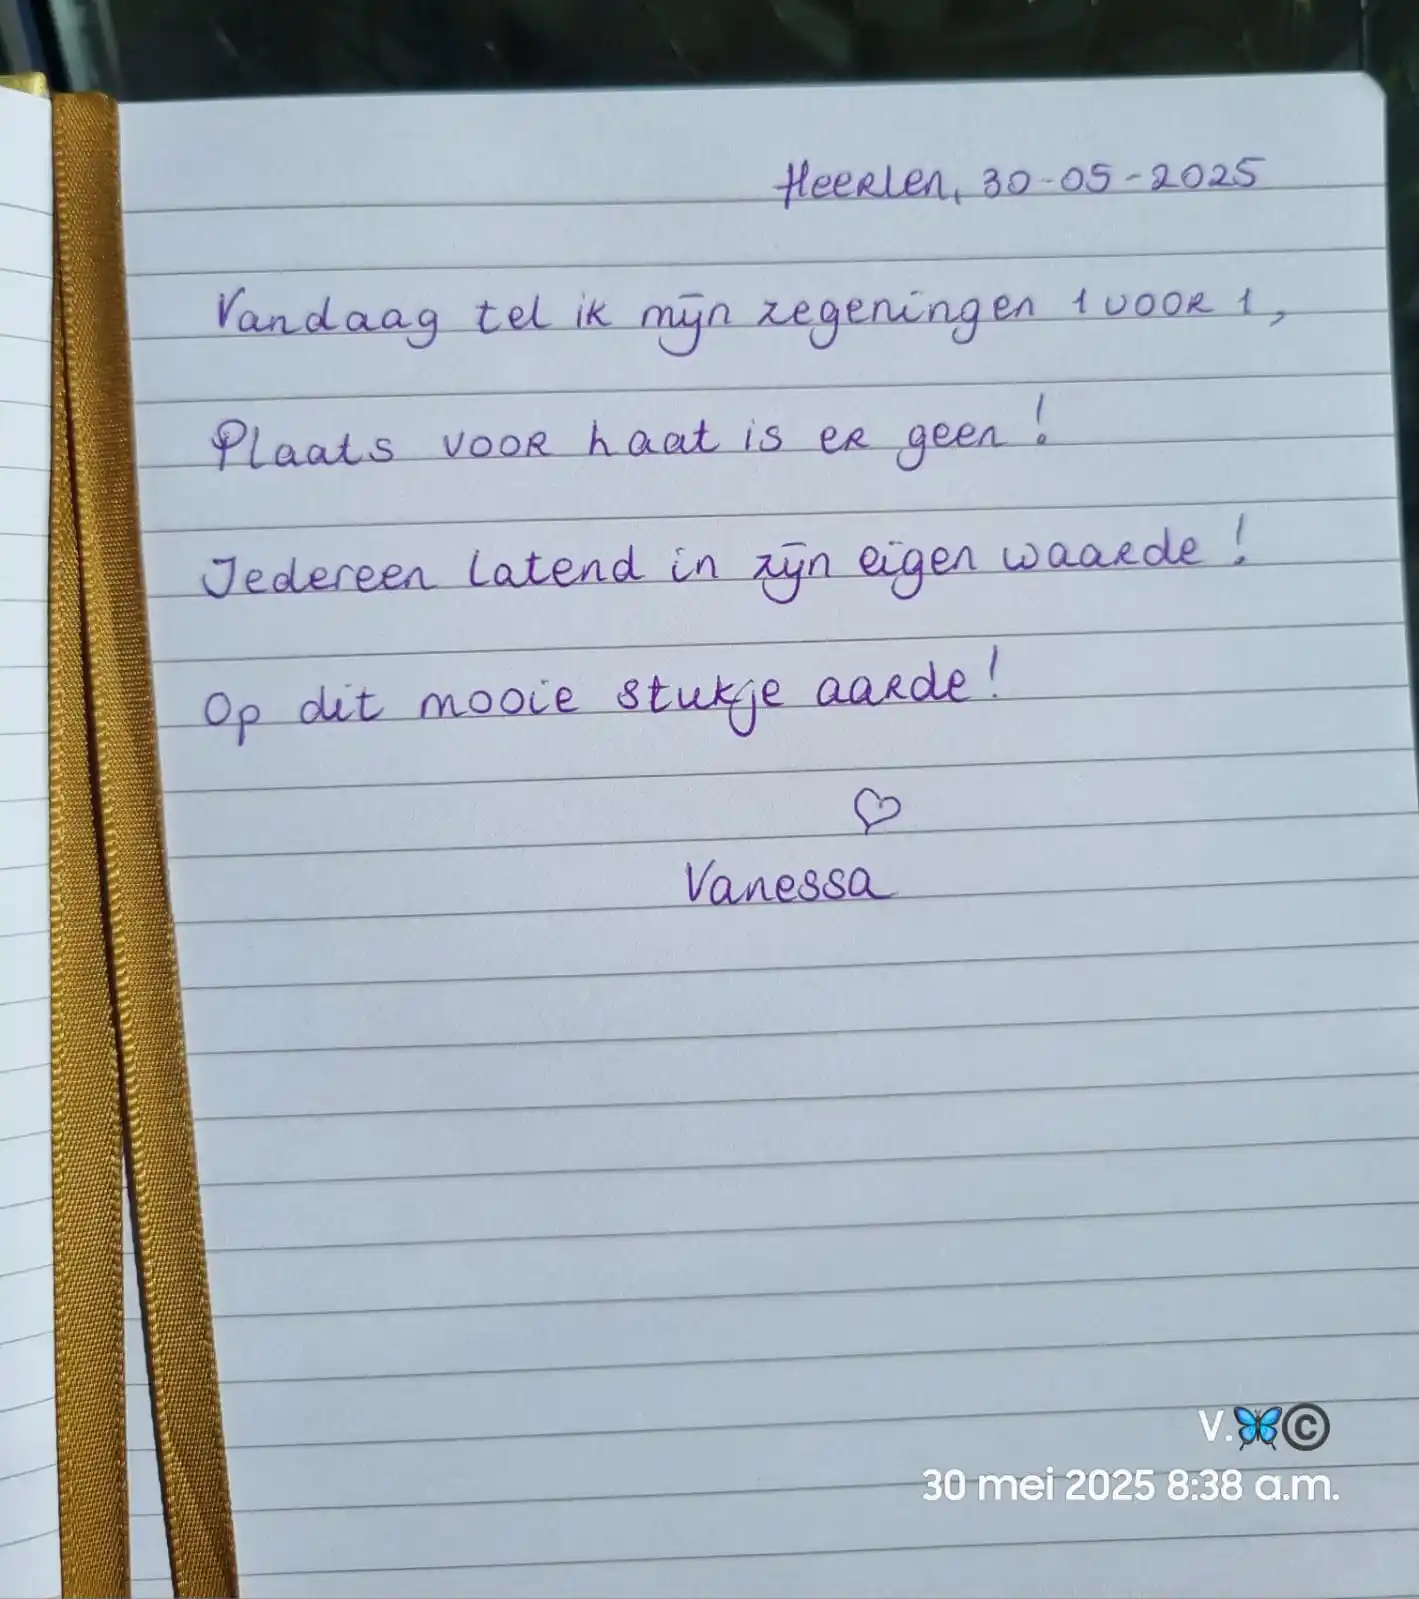 Heerlen, 30-05-2025
Vandaag tel ik mijn zegeningen 1 voor 1,
Plaats voor haat is er geen!
Iedereen latend in zijn eigen waarde!
Op dit mooie stukje aarde!
♡
Vanessa
V.🦋©
30 mei 2025 8:38 a.m.